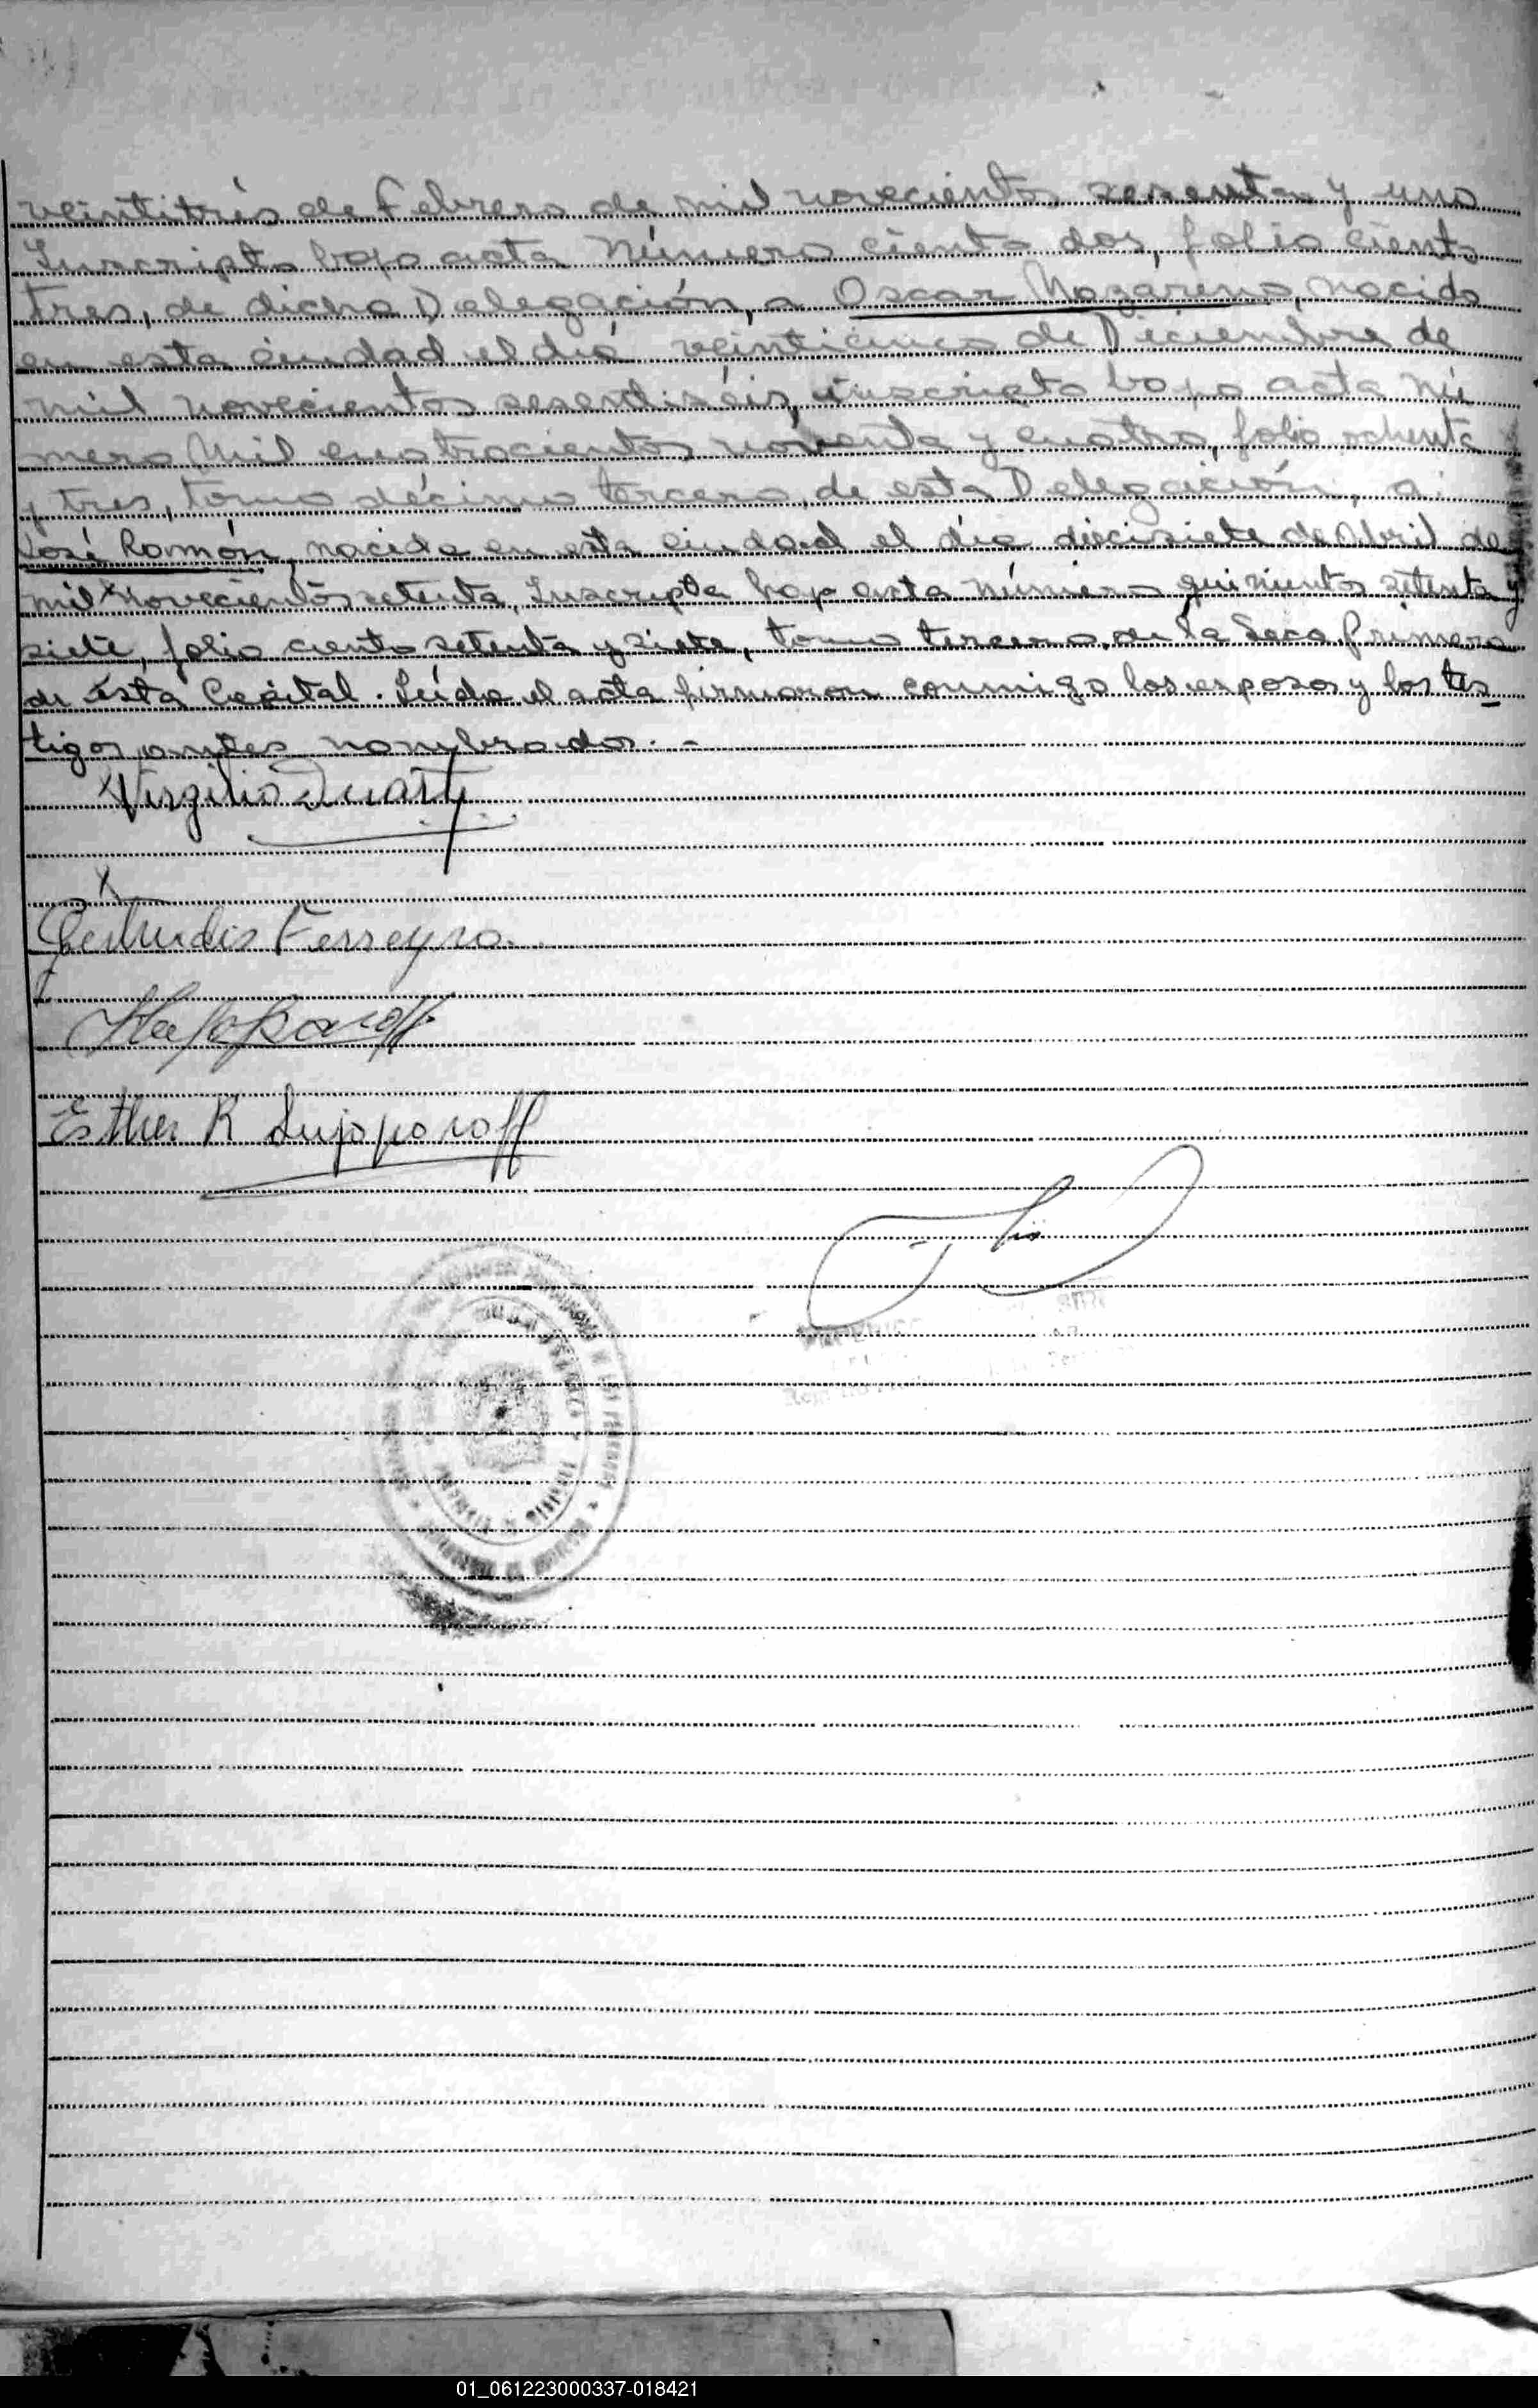 veintitrés de Febrero de mil novecientos sesenta y uno
Inscripto bajo acta Número ciento dos, folio ciento
tres, de dicha Delegación, a Oscar Nazareno, nacido
en esta ciudad el día veinticinco de Diciembre de
mil novecientos sesentiséis, inscripto bajo acta Nú
mero Mil cuatrocientos noventa y cuatro, folio ochenta
y tres, tomo décimo tercero, de esta Delegación, a
José Ramón, nacido en esta ciudad el día diecisiete de Abril de
mil novecientos setenta, Inscripto bajo acta número quinientos setenta y
siete, folio ciento setenta y siete, tomo tercero, de la Secc. Primera
de ésta Capital. Leída el acta firmaron conmigo los esposos y los tes
tigos antes nombrados. -
Virgilio Duarte
X
Gertrudis Ferreyra.
Esther R Lujoporoff
01_061223000337-018421